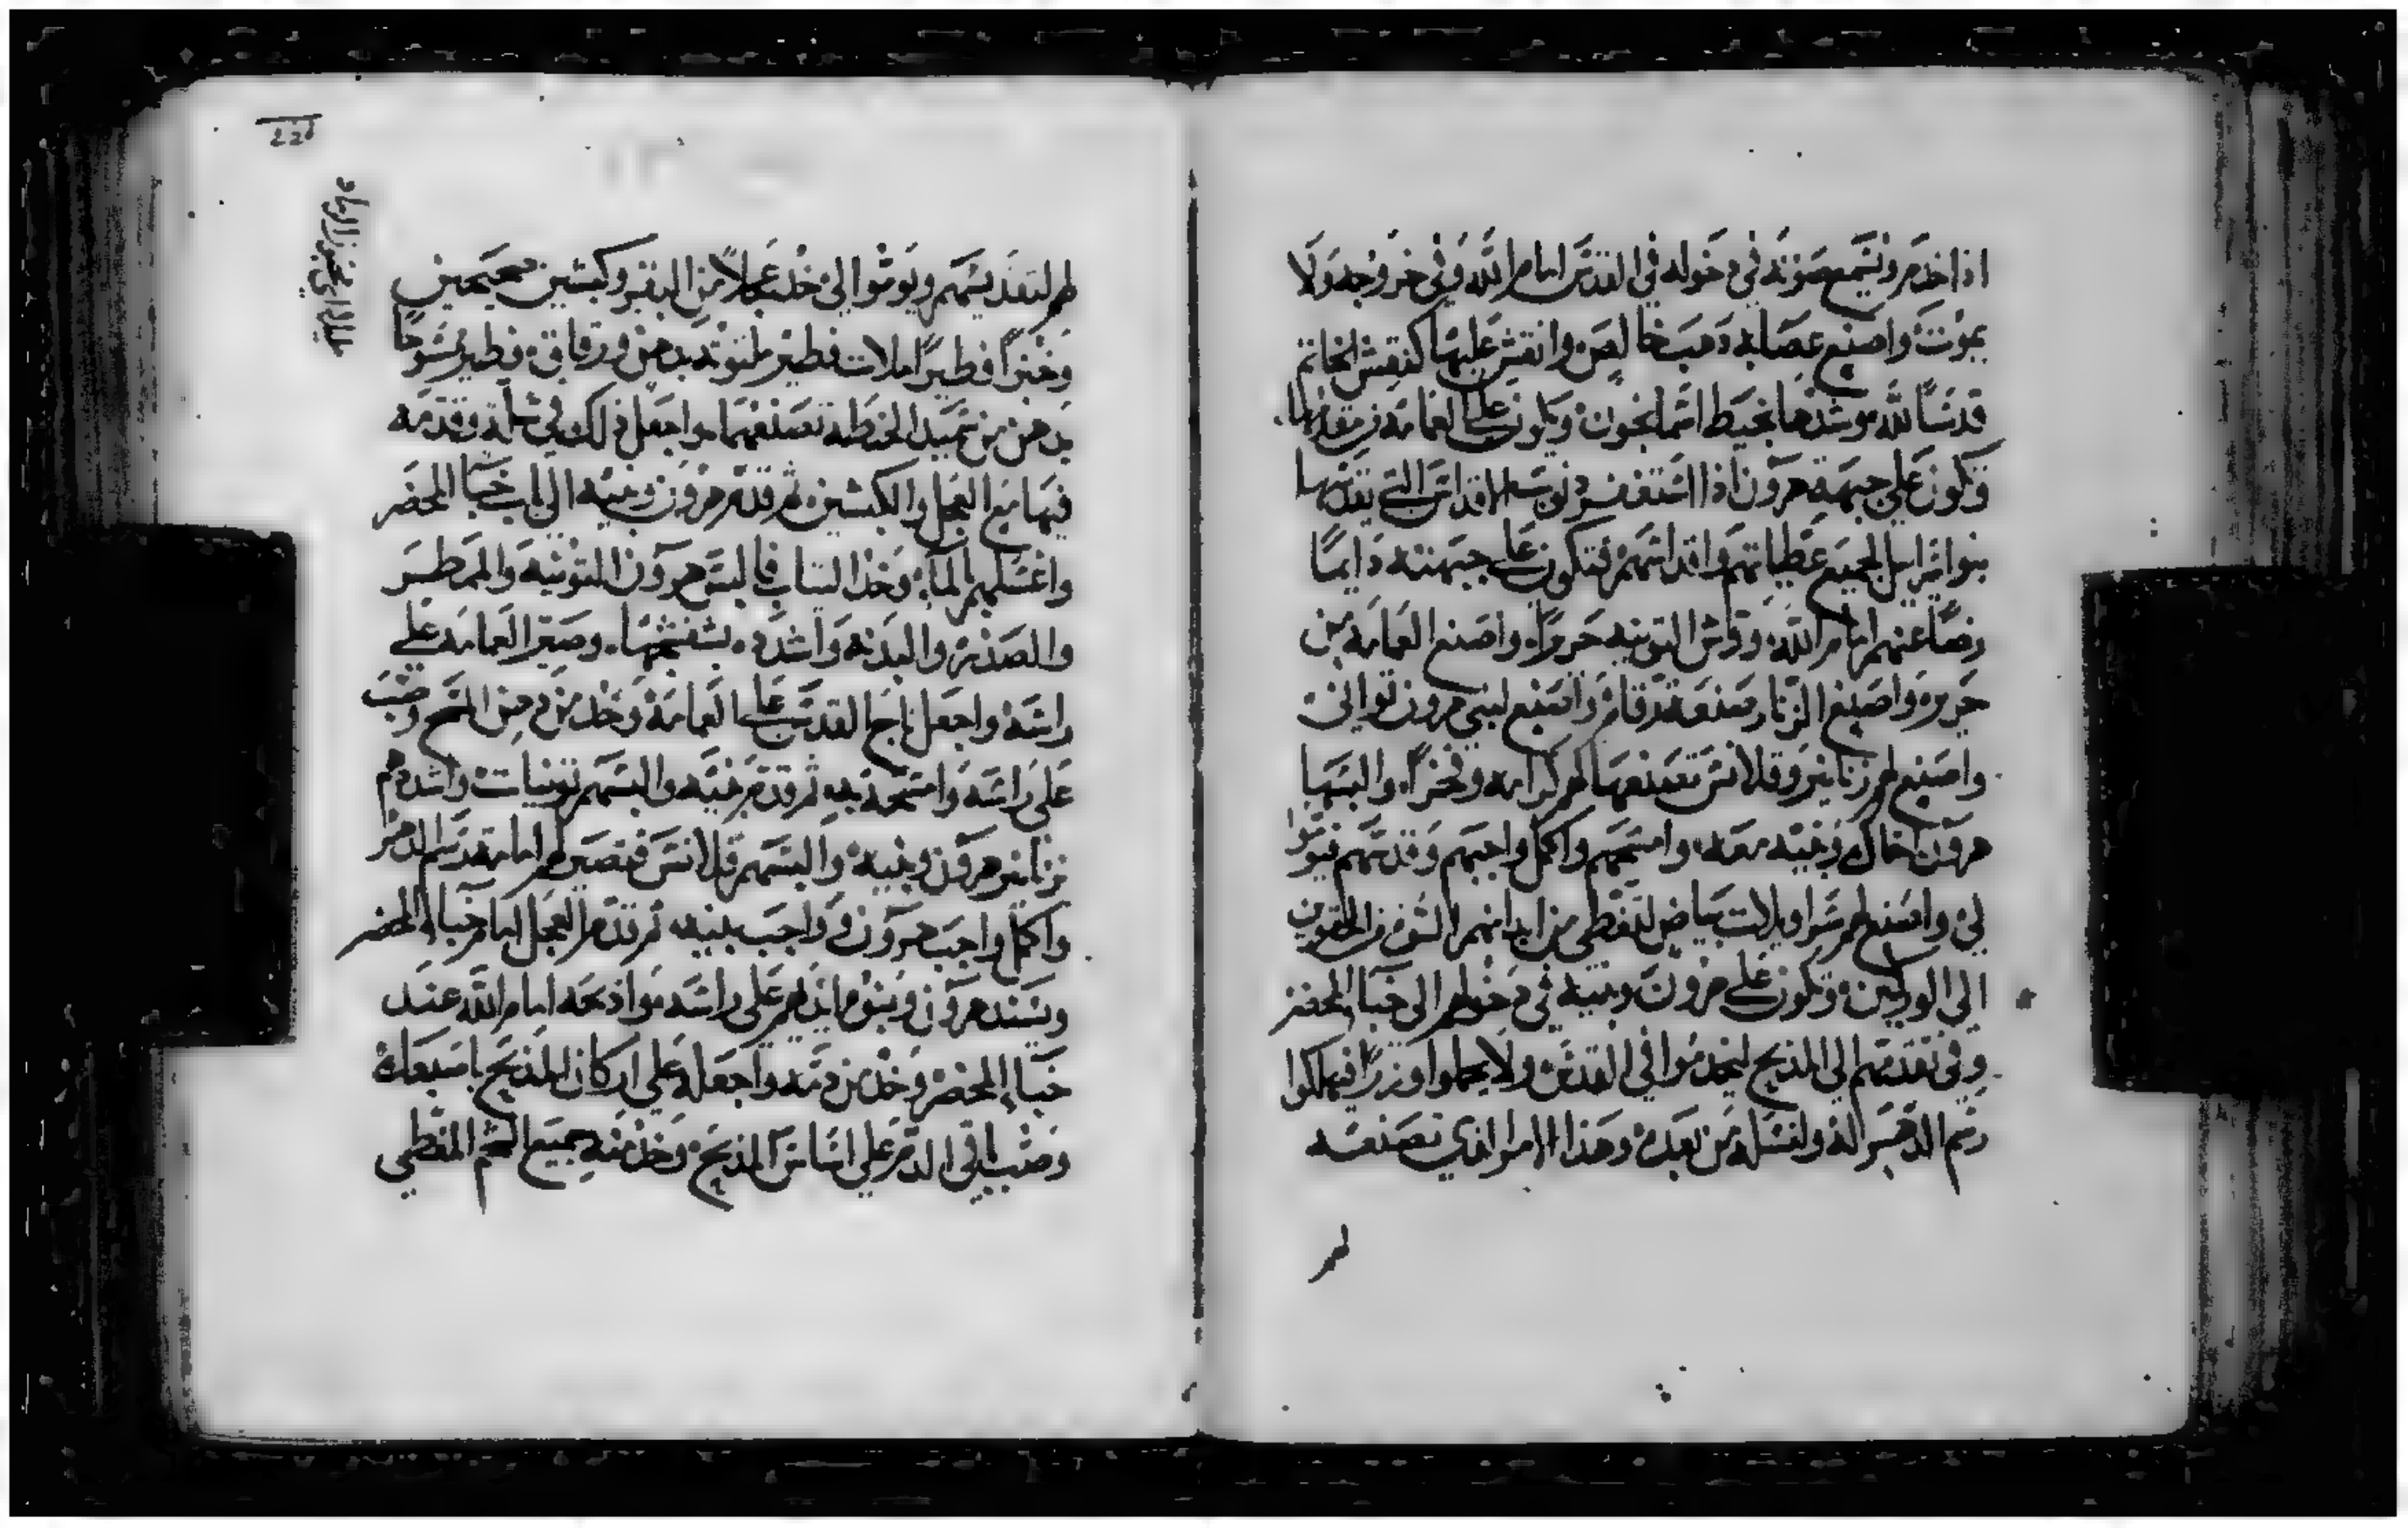 اذا خدم ونسمع صوته في دخوله في القدس امام الله وفي خروجه ولا
يموت واصنع عصابه ذهب خالص وانقش عليها كنقش الخاتم
قدسًا لله وشدها بخيط اسمانجون ويكون على العمامه من مقدمها
وتكون على جبهة هرون اذا استغفر ذنوب الاقداس التي يقدسها
بنو اسرايل لجميع عطياتهم واقداسهم فتكون على جبهته دايمًا
رضًا عنهم امام الله وقوش التونيه حريرًا واصنع العمامه من
حرير واصنع الزنار صنعة رقام واصنع لبني هرون تواني
واصنع لهم زنانير وقلانس تصنعها لهم كرامه وفخرًا والبسها
هرون اخاك وبنيه معه وامسحهم واكمل واجبهم وقدسهم فيوموا
لي واصنع لهم سراويلات بياض لتغطي من ابدانهم السو من الحقوين
الى الوركين وتكون على هرون وبنيه في دخولهم الى خبا المحضر
وفي تقدمتهم الى المذبح ليخدموا في القدس ولا يحملوا وزرًا فيهلكوا
رسم الدهر له ولنسله من بعده وهذا الامر الذي تصنعه
لهم
226
لهم لتقديسهم ويوموا الي خذ عجلاً من البقر وكبشين صحيحين
وخبزًا فطيرًا ملات فطير ملتوته بدهن ورقاق فطير ممسوحًا
بدهن من سميد الحنطه تصنعهما واجعل ذلك في سله وقدمه
فيها مع العجل والكبشين ثم قدم هرون وبنيه الى باب خبا المحضر
واغسلهم بالماء وخذ الثياب فالبس هرون التونيه والممطر
والصدره والبدنه واشده بشفشجها وصير العمامه على
راسه واجعل تاج القدس على العمامه وخذ من دهن المسح وصب
على راسه وامسحه به ثم قدم بنيه والبسهم تونيات واشدهم
زنانير هرون وبنيه والبسهم قلانس فتصير لهم امامه رسم الدهر
واكمل واجب هرون وواجب بنيه ثم قدم العجل امام خباء المحضر
ويسند هرون وبنوه ايديهم على راسه واذبحه امام الله عند
خباء المحضر وخذ من دمه واجعله على اركان المذبح باصبعك
وصب باقي الدم على اساس المذبح وخذ منه جميع الشحم المغطي